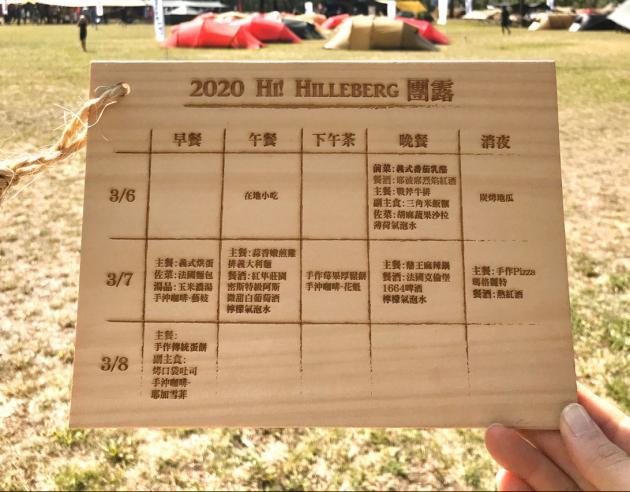 2020 Hi! Hilleberg 團露
早餐 午餐 下午茶 晚餐 消夜
3/6
在地小吃
前菜:義式番茄乳酪
主餐:戰斧牛排
副主食:三角米飯糰
佐菜:胡麻蔬果沙拉
薄荷氣泡水
炭烤地瓜
3/7
主餐:義式烘蛋
佐菜:法國麵包
湯品:玉米濃湯
手沖咖啡-藝妓
主餐:蒜香嫩煎雞
排義大利麵
餐酒:紅隼莊園
密斯特級阿斯
微甜白葡萄酒
檸檬氣泡水
手作莓果厚鬆餅
手沖咖啡-花魁
主餐:鼎王麻辣鍋
餐酒:法國克倫堡
1664啤酒
檸檬氣泡水
主餐:手作Pizza
瑪格麗特
餐酒:熱紅酒
3/8
主餐:
手作傳統蛋餅
副主食:
烤口袋吐司
手沖咖啡-
耶加雪菲